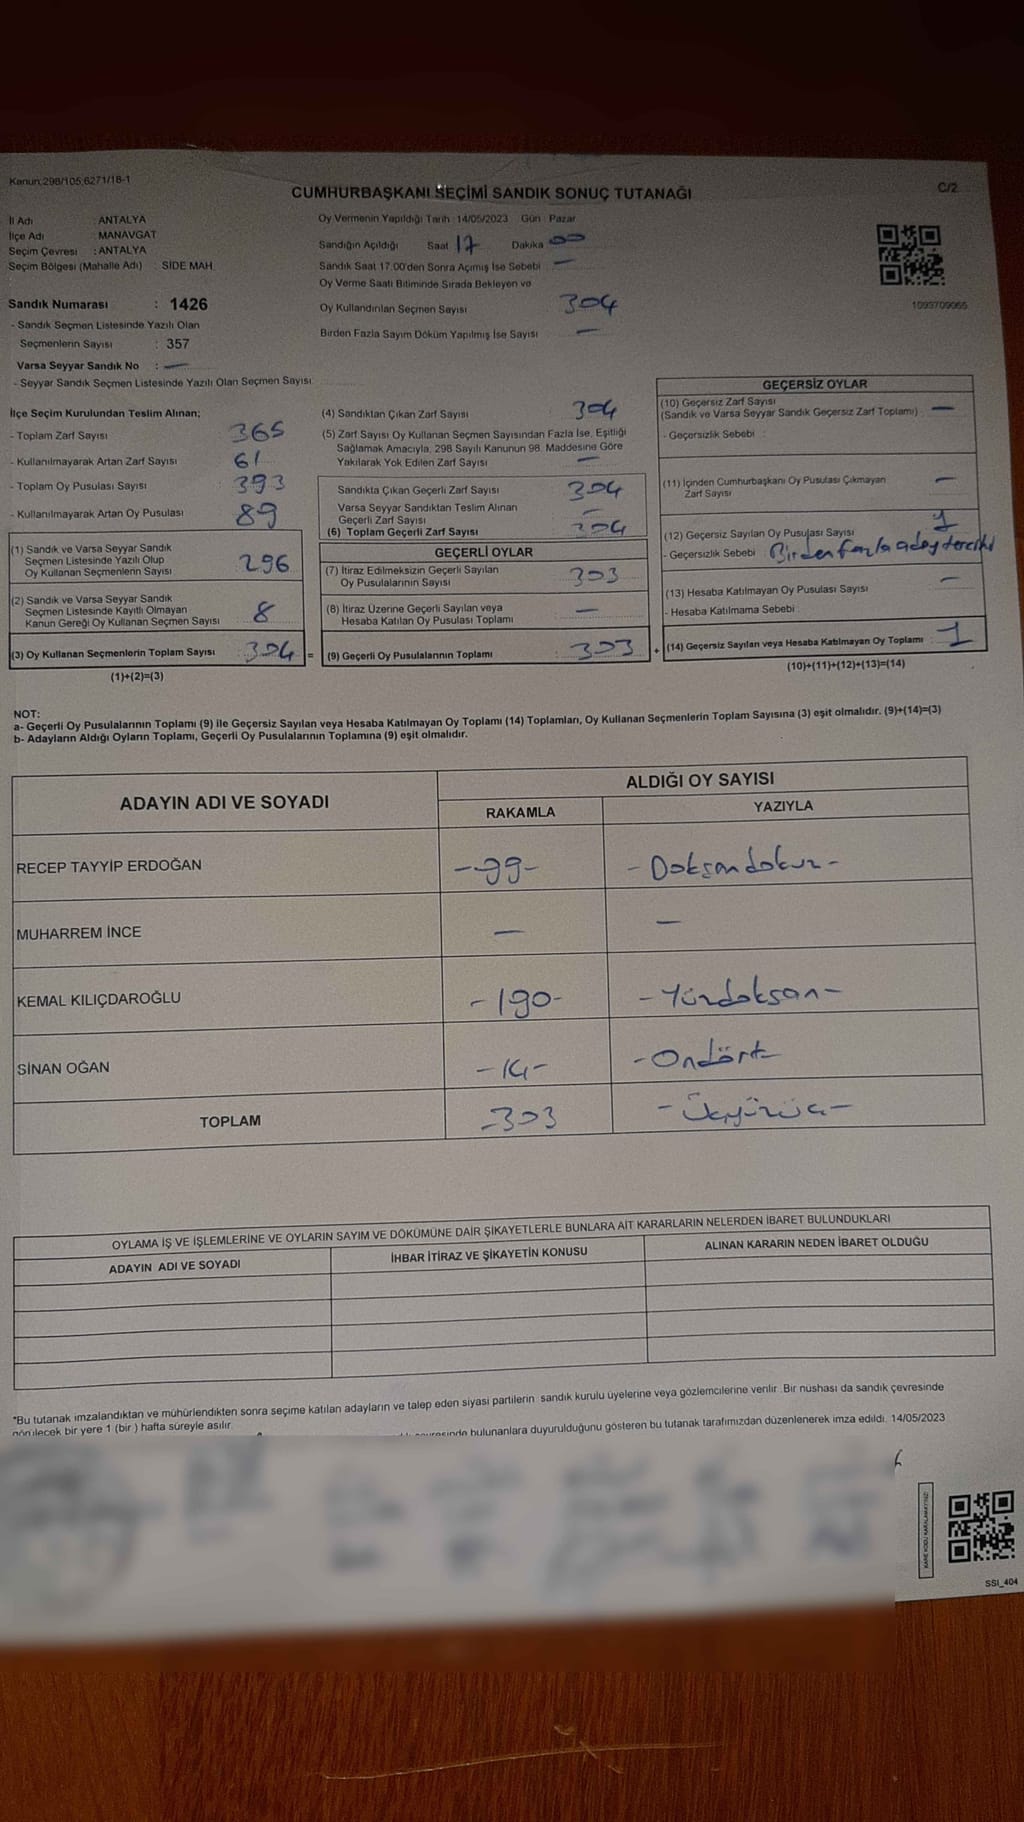 Kanun;298/105;6271/18-1
C/2
CUMHURBAŞKANI SEÇİMİ SANDIK SONUÇ TUTANAĞI
İl Adı : ANTALYA
İlçe Adı : MANAVGAT
Seçim Çevresi : ANTALYA
Seçim Bölgesi (Mahalle Adı) : SİDE MAH.
Sandık Numarası : 1426
- Sandık Seçmen Listesinde Yazılı Olan
Seçmenlerin Sayısı : 357
Varsa Seyyar Sandık No : —
- Seyyar Sandık Seçmen Listesinde Yazılı Olan Seçmen Sayısı:
Oy Vermenin Yapıldığı Tarih : 14/05/2023 Gün : Pazar
Sandığın Açıldığı Saat 17 Dakika 00
Sandık Saat 17.00'den Sonra Açımış İse Sebebi : —
Oy Verme Saati Bitiminde Sırada Bekleyen ve
Oy Kullandırılan Seçmen Sayısı 304
Birden Fazla Sayım Döküm Yapılmış İse Sayısı —
1093709065
İlçe Seçim Kurulundan Teslim Alınan;
- Toplam Zarf Sayısı 365
- Kullanılmayarak Artan Zarf Sayısı 61
- Toplam Oy Pusulası Sayısı 393
- Kullanılmayarak Artan Oy Pusulası 89
(1) Sandık ve Varsa Seyyar Sandık
Seçmen Listesinde Yazılı Olup
Oy Kullanan Seçmenlerin Sayısı 296
(2) Sandık ve Varsa Seyyar Sandık
Seçmen Listesinde Kayıtlı Olmayan
Kanun Gereği Oy Kullanan Seçmen Sayısı 8
(3) Oy Kullanan Seçmenlerin Toplam Sayısı : 304 =
(1)+(2)=(3)
(4) Sandıktan Çıkan Zarf Sayısı 304
(5) Zarf Sayısı Oy Kullanan Seçmen Sayısından Fazla İse, Eşitliği
Sağlamak Amacıyla, 298 Sayılı Kanunun 98. Maddesine Göre
Yakılarak Yok Edilen Zarf Sayısı —
Sandıkta Çıkan Geçerli Zarf Sayısı 304
Varsa Seyyar Sandıktan Teslim Alınan
Geçerli Zarf Sayısı —
(6) Toplam Geçerli Zarf Sayısı 304
GEÇERLİ OYLAR
(7) İtiraz Edilmeksizin Geçerli Sayılan
Oy Pusulalarının Sayısı 303
(8) İtiraz Üzerine Geçerli Sayılan veya
Hesaba Katılan Oy Pusulası Toplamı —
(9) Geçerli Oy Pusulalarının Toplamı : 303 +
GEÇERSİZ OYLAR
(10) Geçersiz Zarf Sayısı
(Sandık ve Varsa Seyyar Sandık Geçersiz Zarf Toplamı) : —
- Geçersizlik Sebebi :
(11) İçinden Cumhurbaşkanı Oy Pusulası Çıkmayan —
Zarf Sayısı
(12) Geçersiz Sayılan Oy Pusulası Sayısı 1
- Geçersizlik Sebebi : Birden fazla aday tercihi
(13) Hesaba Katılmayan Oy Pusulası Sayısı —
- Hesaba Katılmama Sebebi :
(14) Geçersiz Sayılan veya Hesaba Katılmayan Oy Toplamı : 1
(10)+(11)+(12)+(13)=(14)
NOT:
a- Geçerli Oy Pusulalarının Toplamı (9) ile Geçersiz Sayılan veya Hesaba Katılmayan Oy Toplamı (14) Toplamları, Oy Kullanan Seçmenlerin Toplam Sayısına (3) eşit olmalıdır. (9)+(14)=(3)
b- Adayların Aldığı Oyların Toplamı, Geçerli Oy Pusulalarının Toplamına (9) eşit olmalıdır.
ADAYIN ADI VE SOYADI
ALDIĞI OY SAYISI
RAKAMLA YAZIYLA
RECEP TAYYİP ERDOĞAN -99- -Doksandokuz-
MUHARREM İNCE — —
KEMAL KILIÇDAROĞLU -190- -Yüzdoksan-
SİNAN OĞAN -14- -Ondört-
TOPLAM -303 -Üçyüzüç-
OYLAMA İŞ VE İŞLEMLERİNE VE OYLARIN SAYIM VE DÖKÜMÜNE DAİR ŞİKAYETLERLE BUNLARA AİT KARARLARIN NELERDEN İBARET BULUNDUKLARI
ADAYIN ADI VE SOYADI İHBAR İTİRAZ VE ŞİKAYETİN KONUSU ALINAN KARARIN NEDEN İBARET OLDUĞU
*Bu tutanak imzalandıktan ve mühürlendikten sonra seçime katılan adayların ve talep eden siyasi partilerin sandık kurulu üyelerine veya gözlemcilerine verilir. Bir nüshası da sandık çevresinde
görülecek bir yere 1 (bir ) hafta süreyle asılır.
bulunanlara duyurulduğunu gösteren bu tutanak tarafımızdan düzenlenerek imza edildi. 14/05/2023
SSI_404